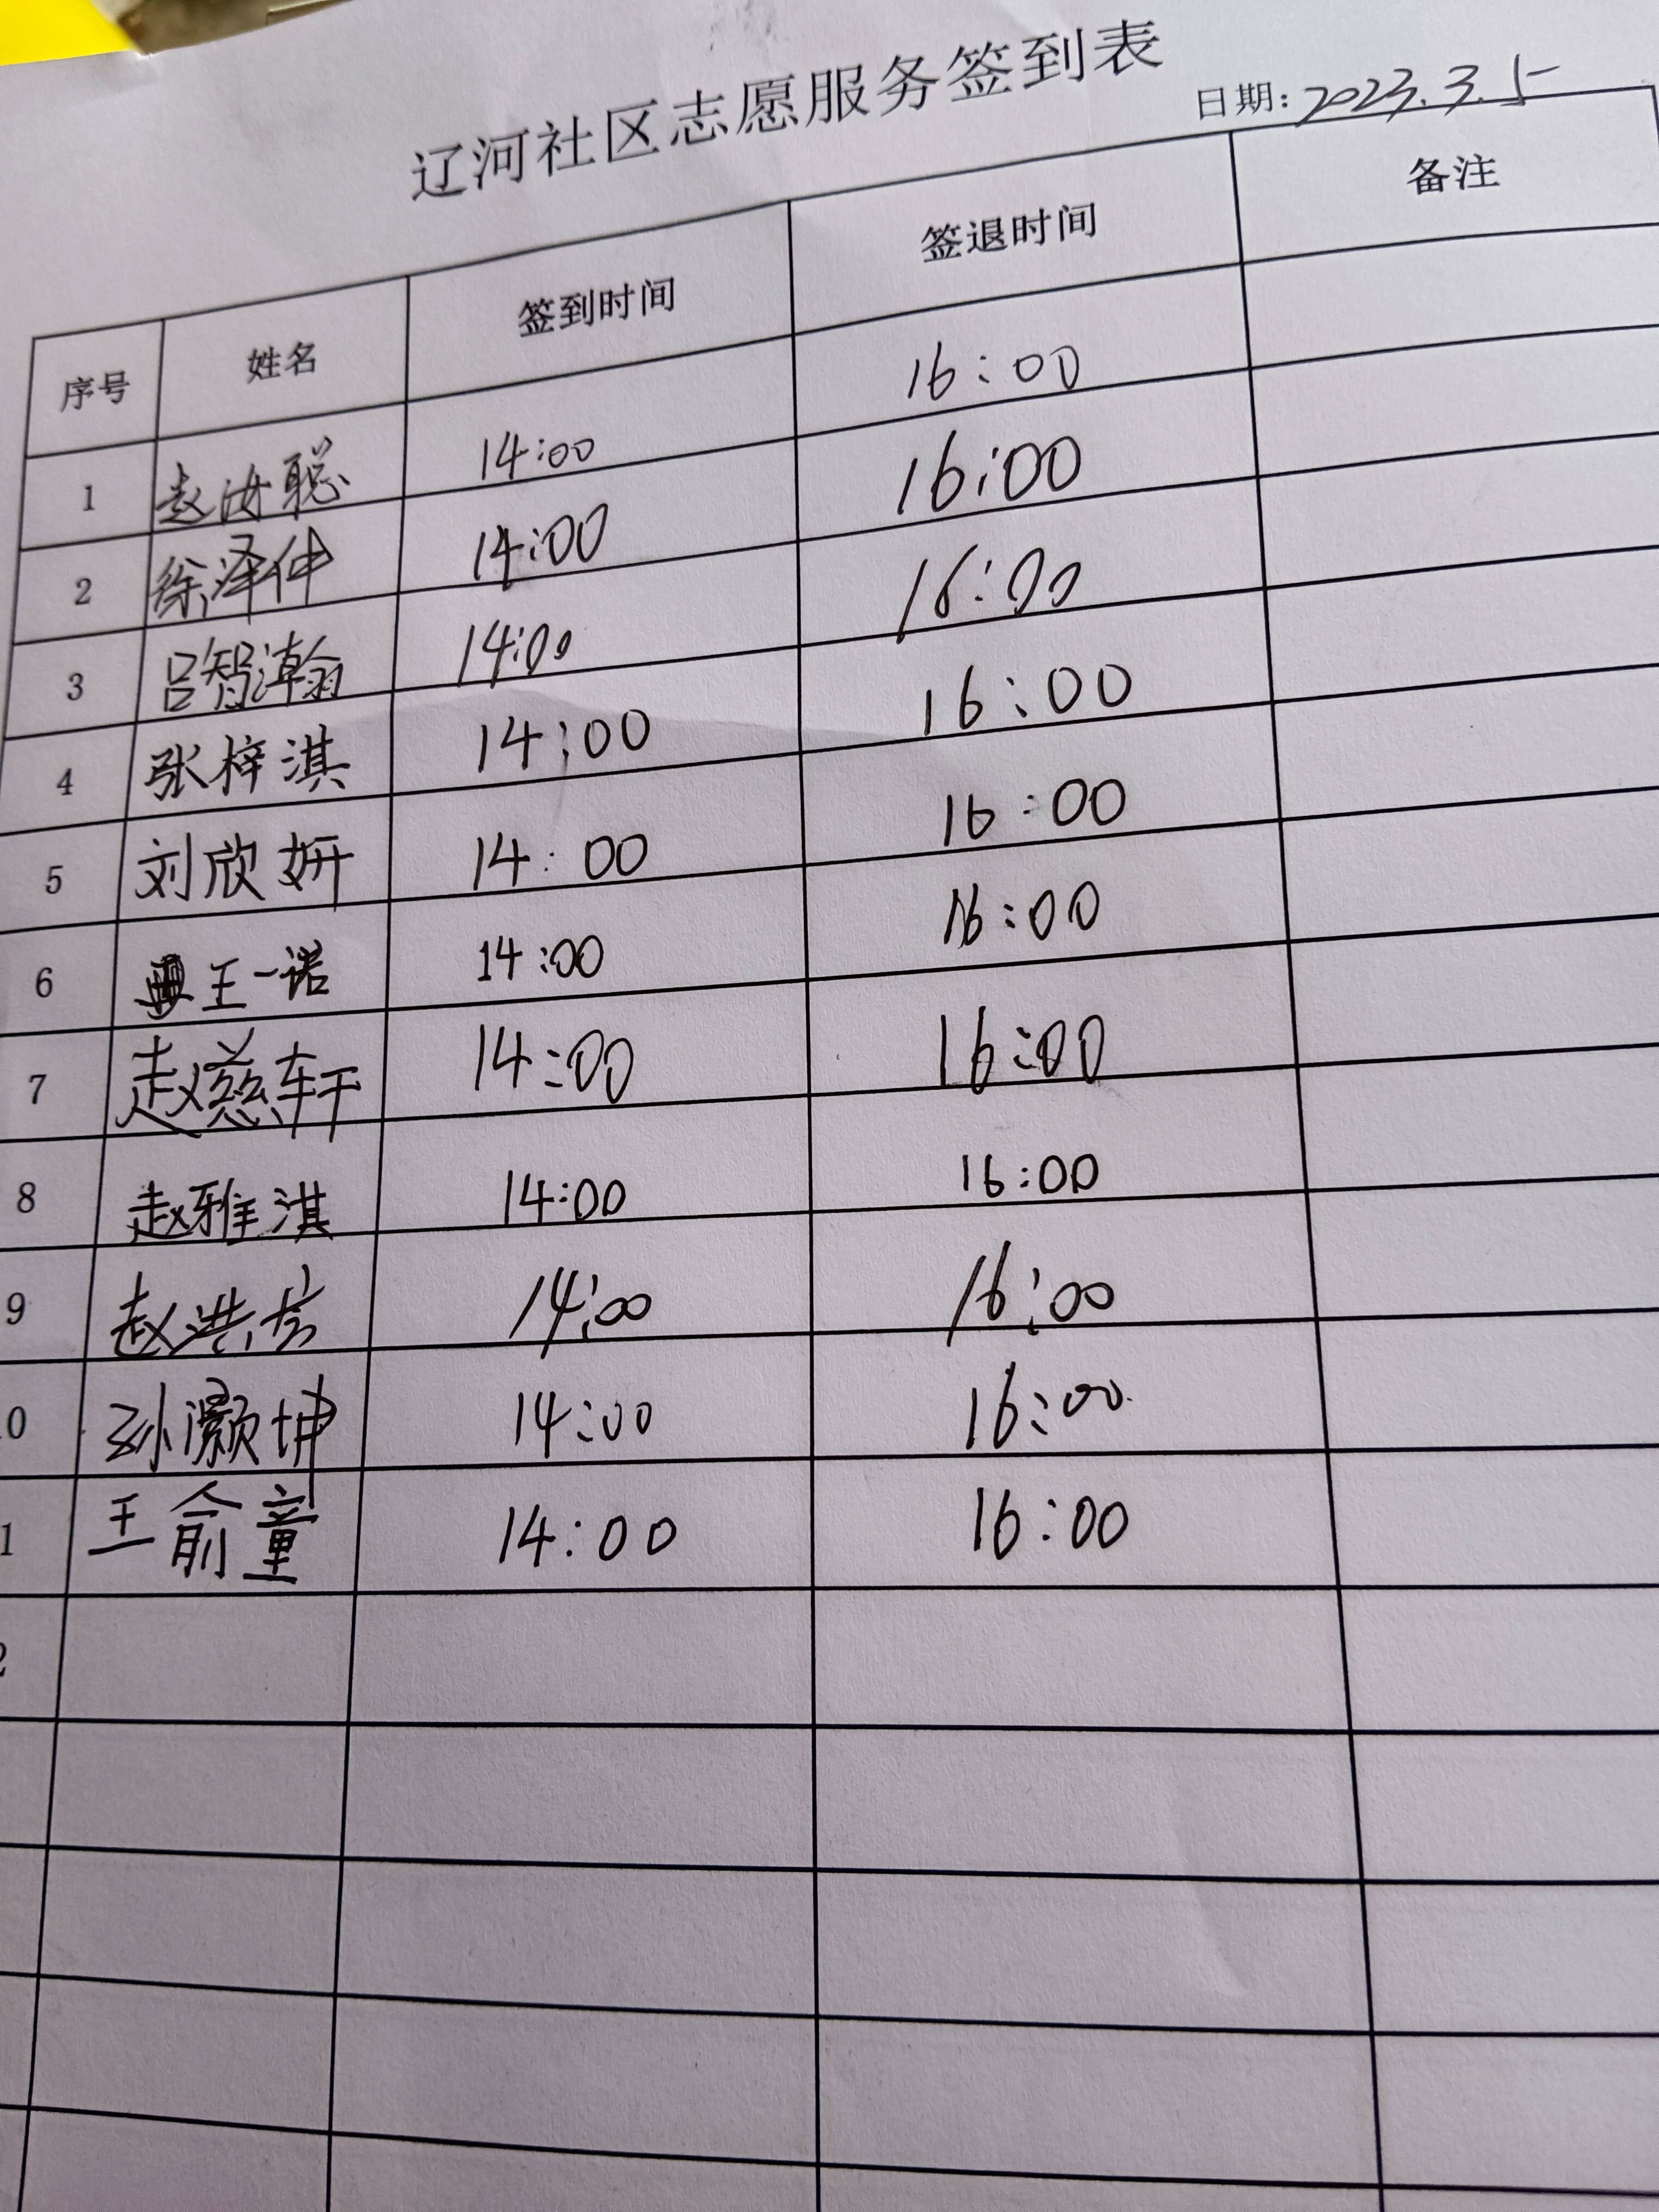 辽河社区志愿服务签到表
日期: 2023.3.5
序号 姓名 签到时间 签退时间 备注
1 赵汝聪 14:00 16:00
2 徐泽仲 14:00 16:00
3 吕智瀚 14:00 16:00
4 张梓淇 14:00 16:00
5 刘欣妍 14:00 16:00
6 王一诺 14:00 16:00
7 赵慈轩 14:00 16:00
8 赵雅淇 14:00 16:00
9 赵洪 14:00 16:00
0 孙灏坤 14:00 16:00
1 王俞童 14:00 16:00
2